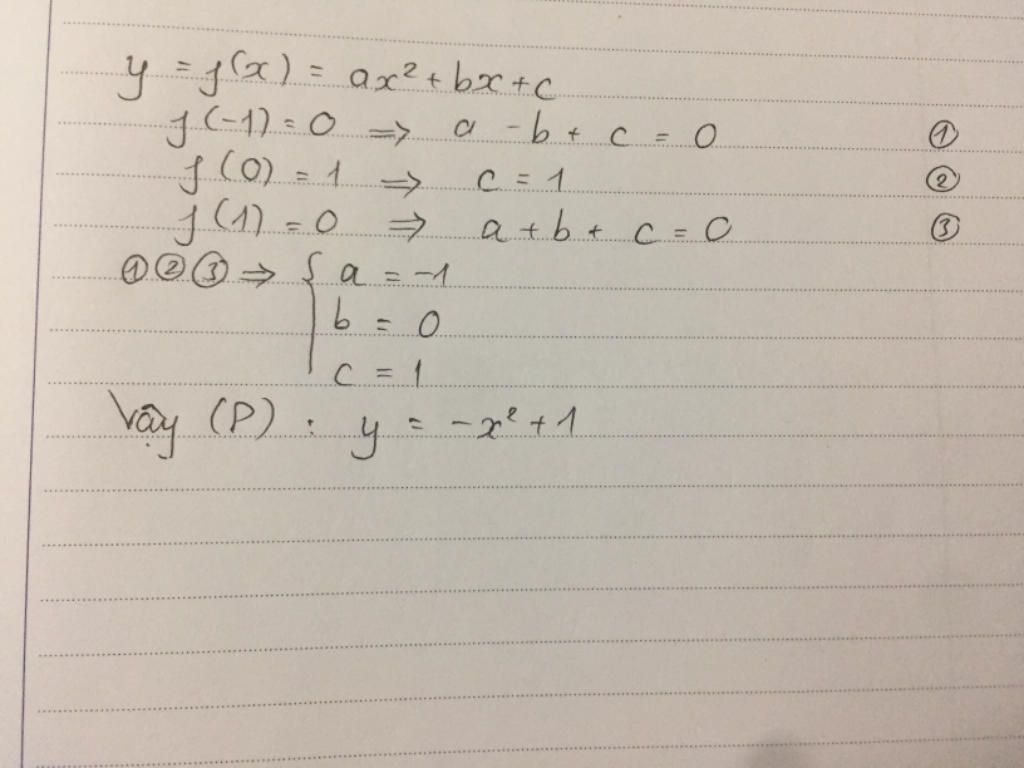 y = f(x) = ax² + bx + c
f(-1) = 0 ⇒ a - b + c = 0 ①
f(0) = 1 ⇒ c = 1 ②
f(1) = 0 ⇒ a + b + c = 0 ③
①②③ ⇒ { a = -1
b = 0
c = 1
Vậy (P) : y = -x² + 1